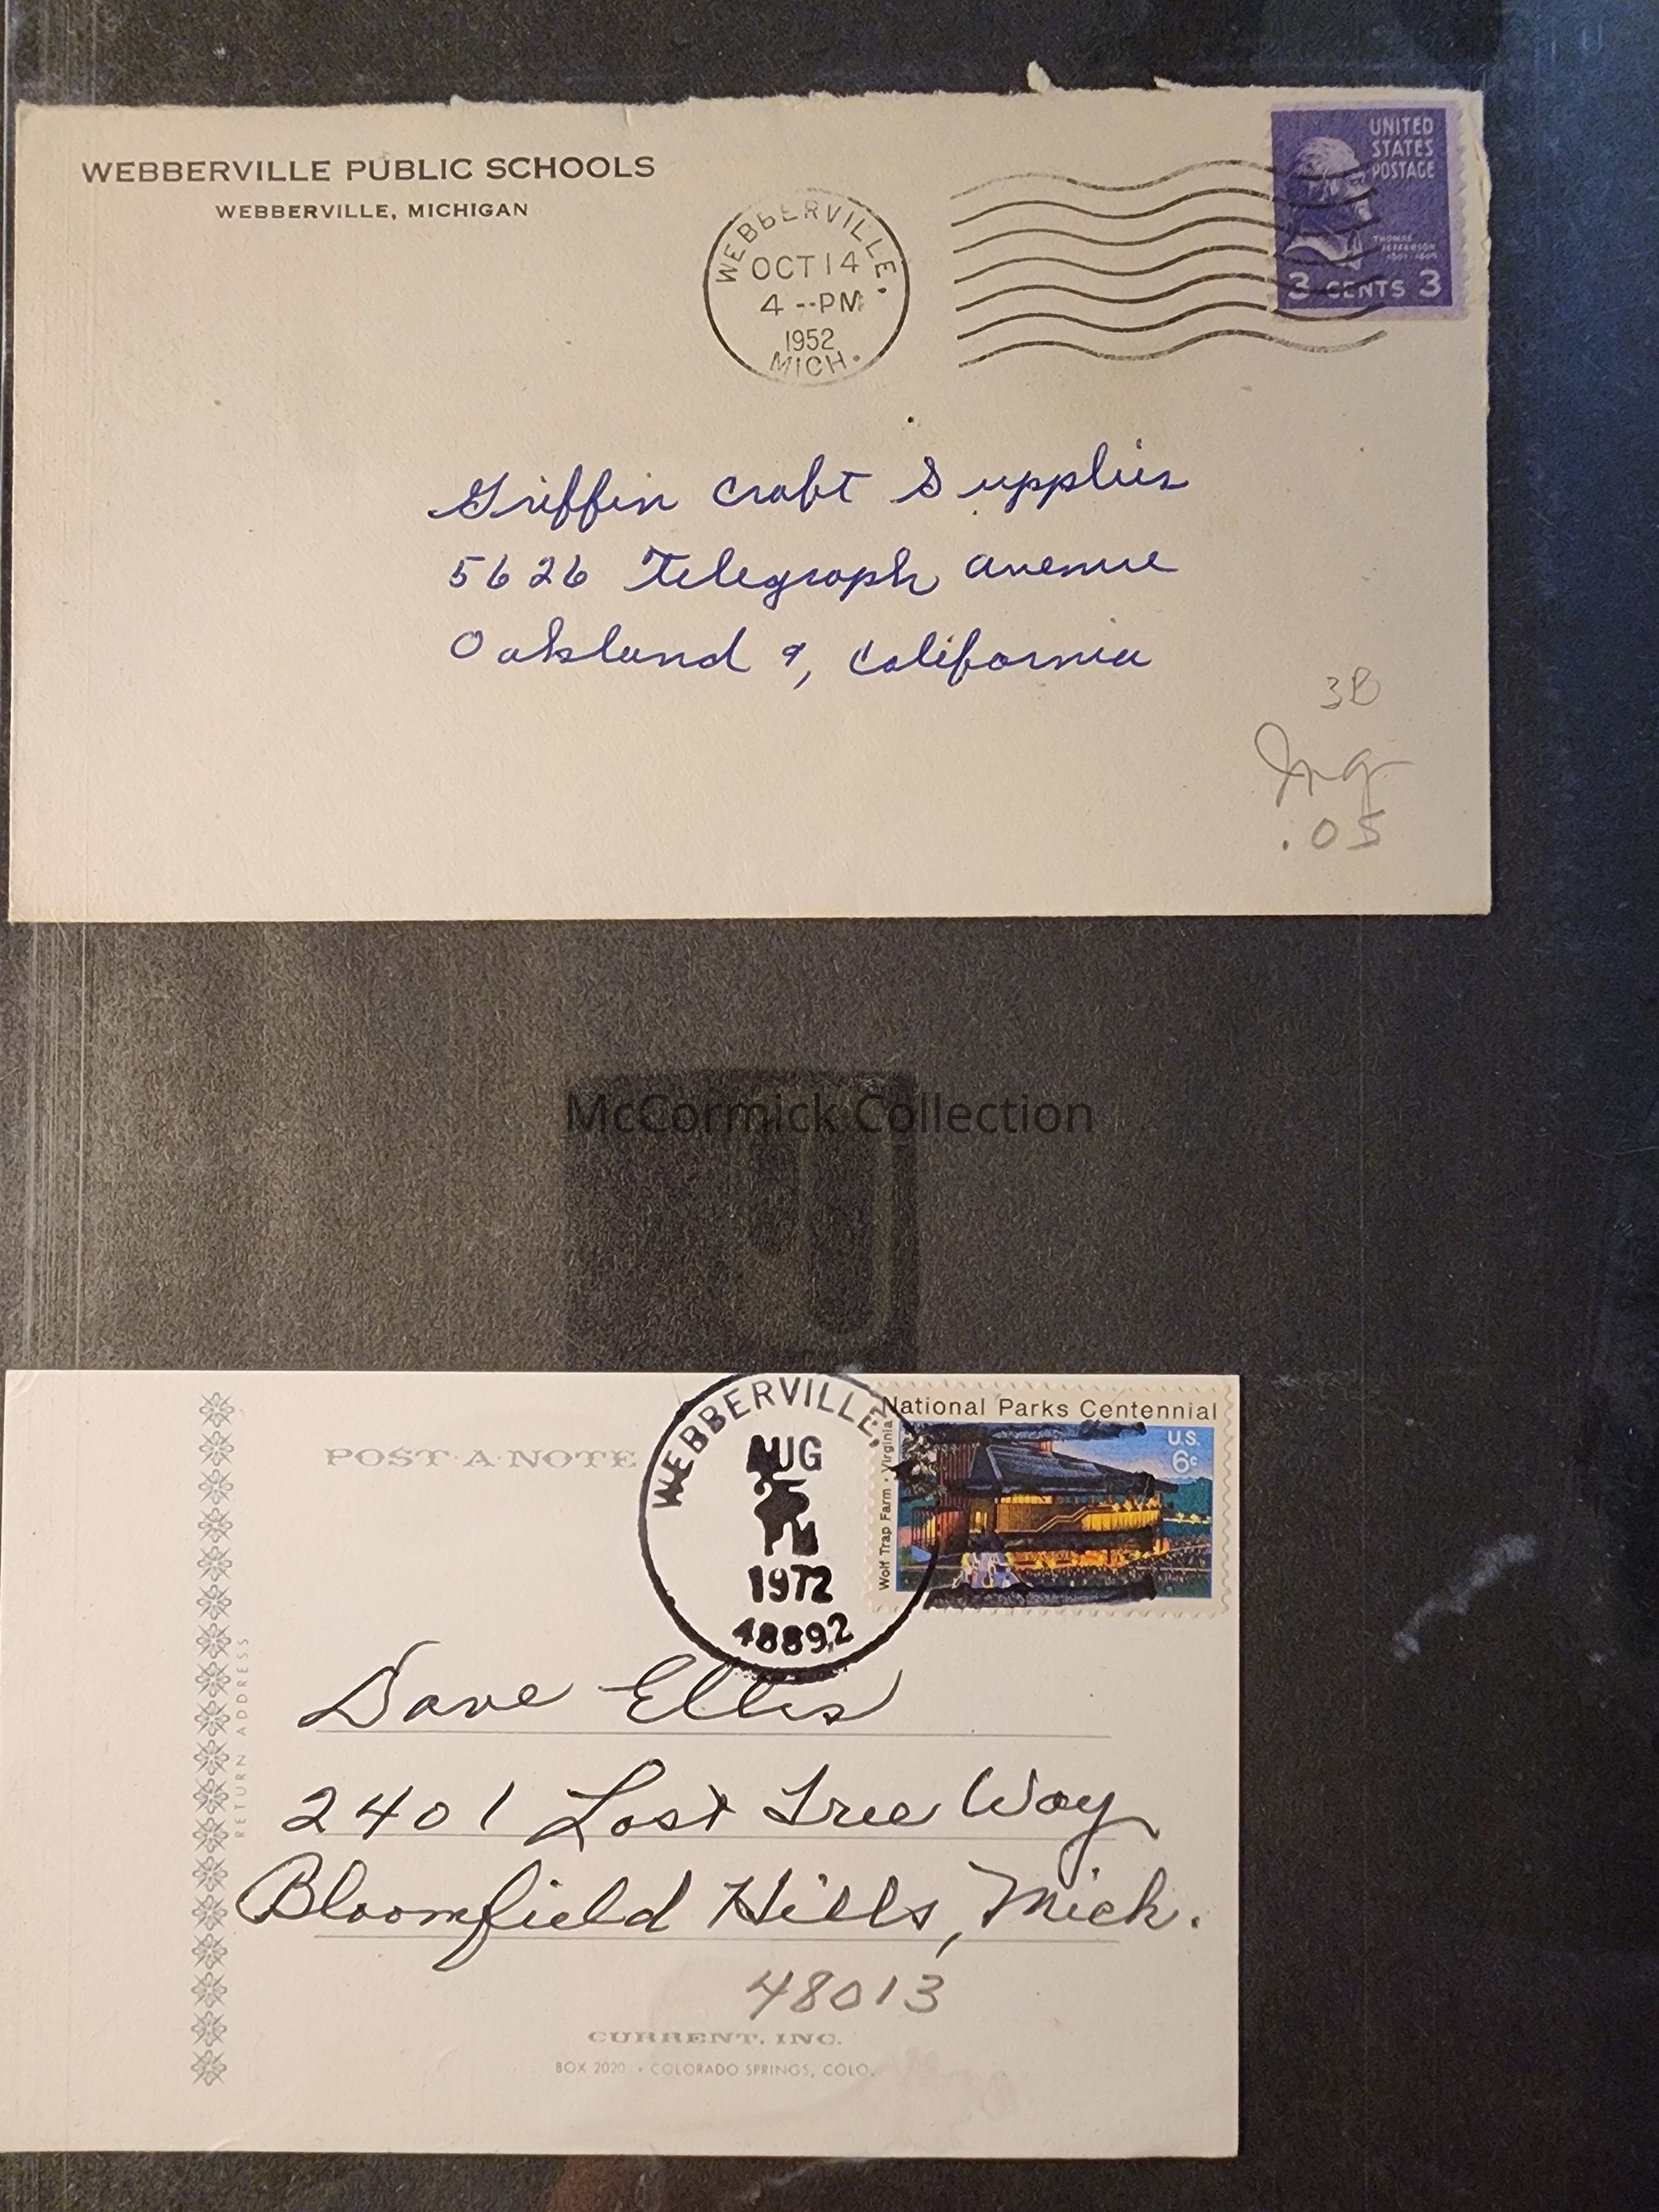 WEBBERVILLE PUBLIC SCHOOLS
WEBBERVILLE, MICHIGAN
WEBBERVILLE.
OCT 14
4 --PM
1952
MICH.
UNITED
STATES
POSTAGE
THOMAS
JEFFERSON
1801-1809
3 CENTS 3
Griffin Craft Supplies
5626 Telegraph Avenue
Oakland 9, California
3B
.05
McCormick Collection
POST·A·NOTE
WEBBERVILLE,
AUG
PM
1972
48892
National Parks Centennial
U.S.
6c
Wolf Trap Farm · Virginia
RETURN ADDRESS
Dave Ellis
2401 Lost Tree Way
Bloomfield Hills, Mich.
48013
CURRENT, INC.
BOX 2020 • COLORADO SPRINGS, COLO.